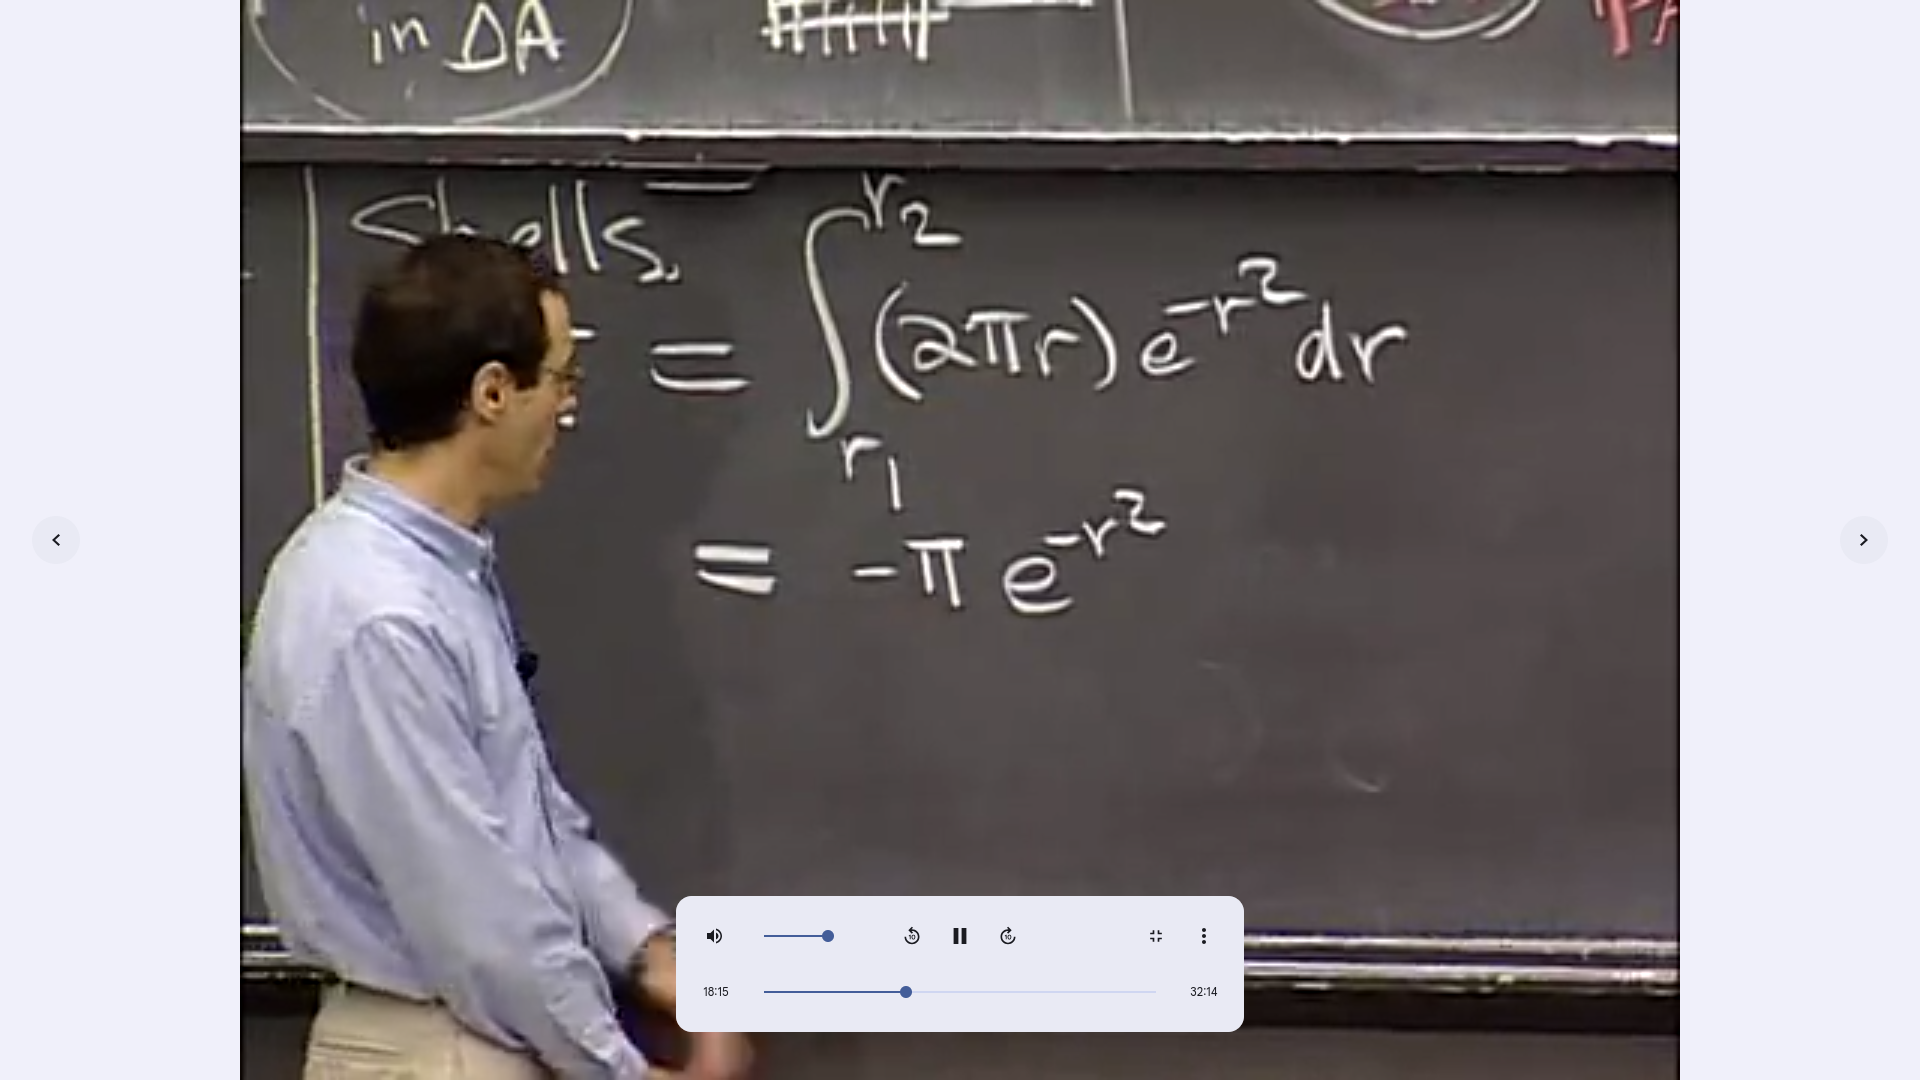 in ΔA
Shells.
= ∫_{r₁}^{r₂} (2πr) e^{-r²} dr
= -π e^{-r²}
18:15
32:14